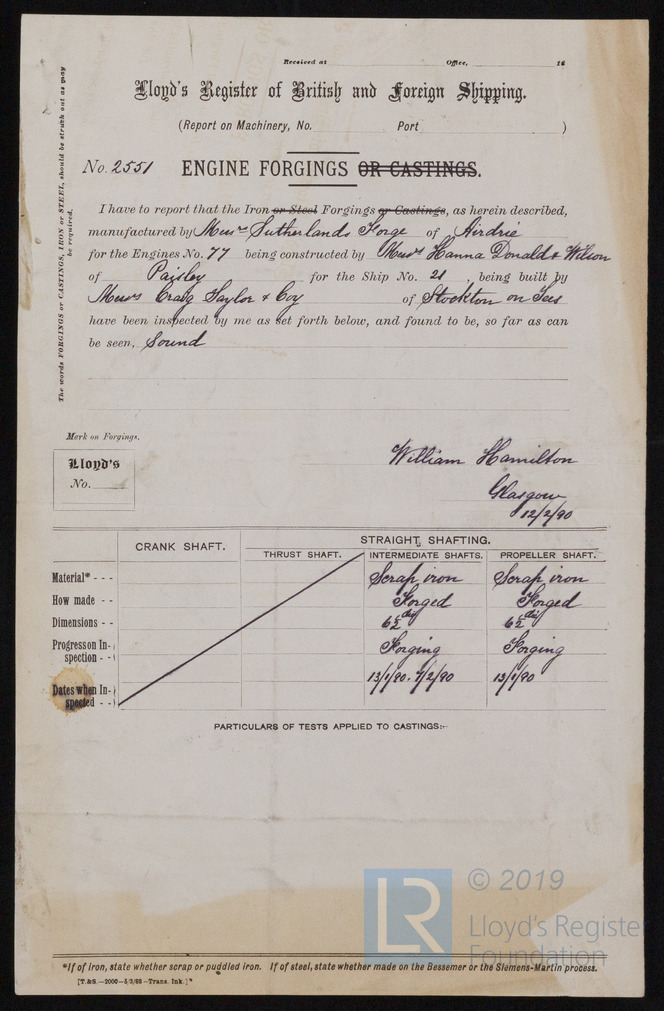 Received at Office, 18
Lloyd's Register of British and Foreign Shipping.
(Report on Machinery, No. Port )
The words FORGINGS or CASTINGS, IRON or STEEL, should be struck out as may
be required.
No. 2551 ENGINE FORGINGS OR CASTINGS.
I have to report that the Iron or Steel Forgings or Castings, as herein described,
manufactured by Messrs Sutherlands Forge of Airdrie
for the Engines No. 77 being constructed by Messrs Hanna Donald & Wilson
of Paisley for the Ship No. 21 being built by
Messrs Craig Taylor & Coy of Stockton on Tees
have been inspected by me as set forth below, and found to be, so far as can
be seen, Sound
Mark on Forgings.
Lloyd's
No.
William Hamilton
Glasgow
12/2/90
CRANK SHAFT. STRAIGHT SHAFTING.
THRUST SHAFT. INTERMEDIATE SHAFTS. PROPELLER SHAFT.
Material* - - - Scrap iron Scrap iron
How made - - Forged Forged
Dimensions - - 6½" dia 6½" dia
Progress on In-
spection - - Forging Forging
Dates when In-
spected - - 13/1/90. 7/2/90 13/1/90
PARTICULARS OF TESTS APPLIED TO CASTINGS:-
© 2019
Lloyd's Register
Foundation
LR
*If of iron, state whether scrap or puddled iron. If of steel, state whether made on the Bessemer or the Siemens-Martin process.
[T. & S.—2000—5/3/88—Trans. Ink.]